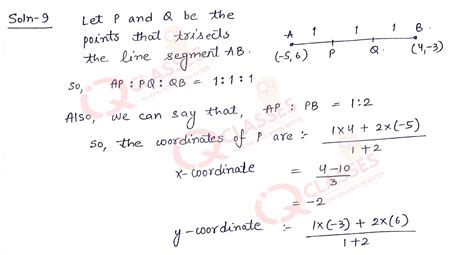 Soln-9 Let P and Q be the
points that trisects
the line segment AB.
A 1 1 1 B
(-5,6) P Q (4,-3)
So, AP : PQ : QB = 1:1:1
Also, we can say that, AP : PB = 1:2
So, the coordinates of P are :- (1×4 + 2×(-5))/(1+2)
x-coordinate = (4-10)/3
= -2
y-coordinate :- (1×(-3) + 2×(6))/(1+2)
IQ CLASSES
IQ CLASSES
IQ CLASSES